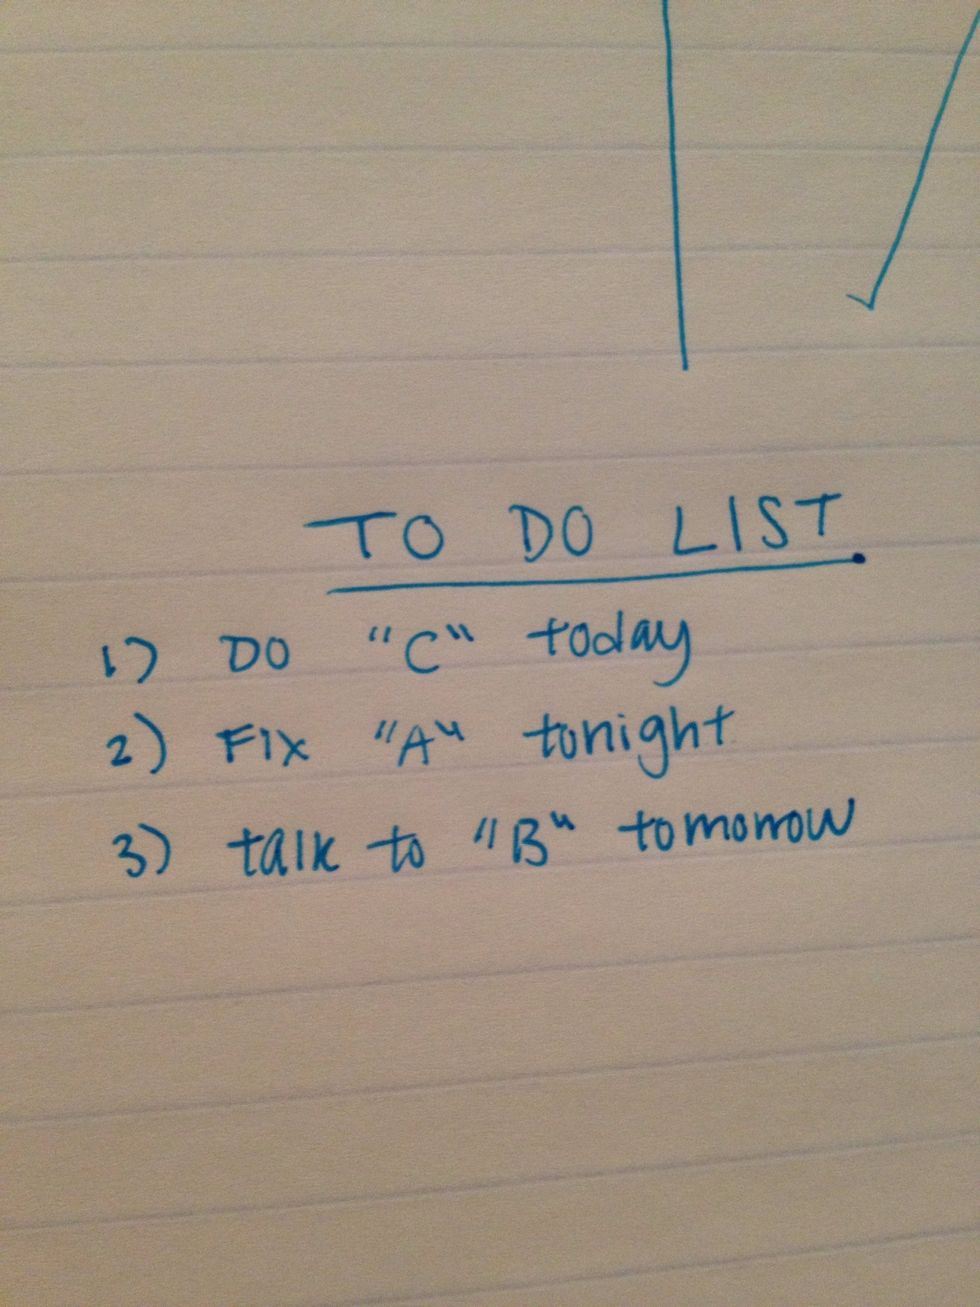 TO DO LIST
1) DO "C" today
2) FIX "A" tonight
3) talk to "B" tomorrow